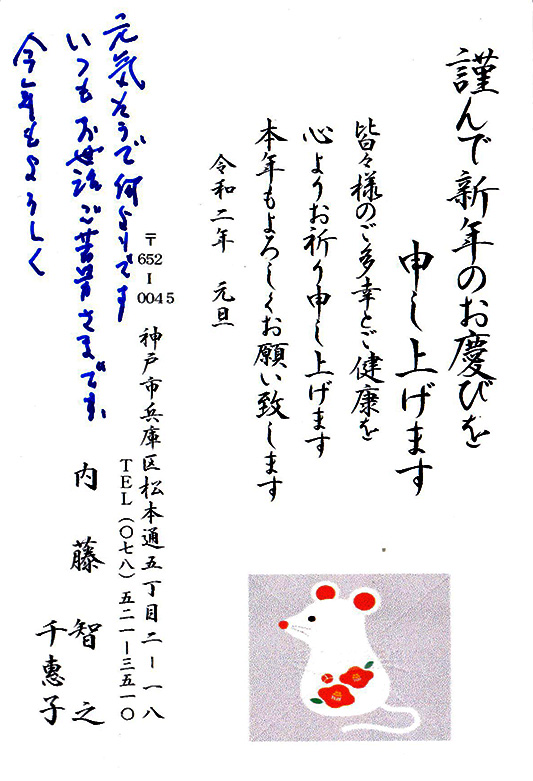 謹んで新年のお慶びを
申し上げます
皆々様のご多幸とご健康を
心よりお祈り申し上げます
本年もよろしくお願い致します
令和二年 元旦
〒652-0045
神戸市兵庫区松本通五丁目二ー一八
TEL(〇七八)五二一ー三五一〇
内藤智之
千惠子
元気そうで何よりです
いつもお世話ご苦労さまです、
今年もよろしく